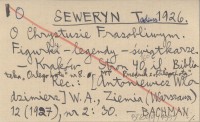 O SEWERYN Tadeusz 1926.
O Chrystusie Frasobliwym.
Figurki - legendy - świątkarze.
Kraków Stron 40 il. Biblio-
Rec.: [Antoniewicz Wło-
dzimierz] W. A., Ziemia (Warszawa)
12 (1927), nr 2: 30. BACHMAN